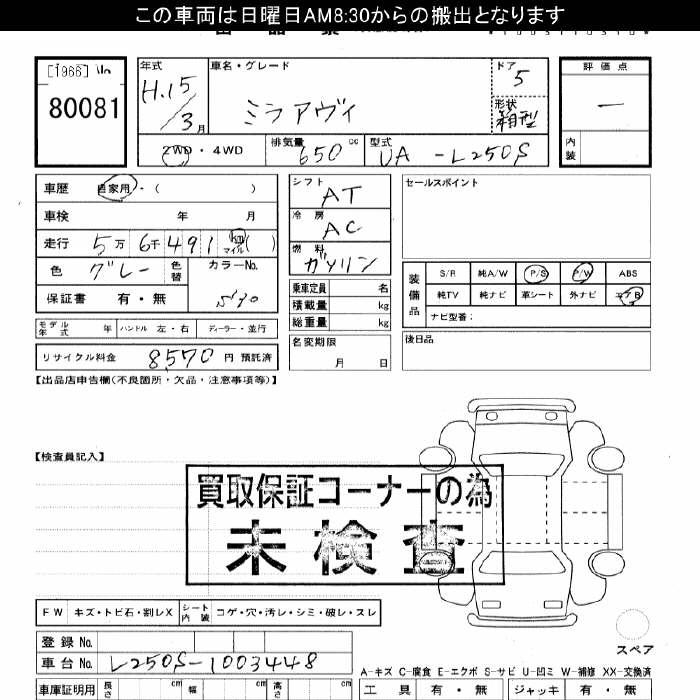 この車両は日曜日AM8:30からの搬出となります
[1966] 110
80081
年式
H.15/3月
車名・グレード
ミラアヴィ
ドア
5
形状
箱型
2WD・4WD
排気量
650cc
型式
UA-L250S
評価点
—
内装
車歴 自家用・( )
車検 年 月
走行 5万6千491km マイル( )
色 グレー 色替
カラーNo.
S30
保証書 有・無
シフト
AT
冷房
AC
燃料
ガソリン
乗車定員 名
積載量 kg
総重量 kg
セールスポイント
装備品
S/R 純A/W P/S P/W ABS
純TV 純ナビ 革シート 外ナビ エアB
ナビ型番:
モデル年式 年 ハンドル 左・右 ディーラー・並行
リサイクル料金 8570円 預託済
名変期限
月 日
後日品
【出品店申告欄(不良箇所・欠品・注意事項等)】
【検査員記入】
買取保証コーナーの為
未検査
FW キズ・トビ石・割レX シート内装 コゲ・穴・汚レ・シミ・破レ・スレ
スペア
登録No.
車台No. L250S-1003448
A-キズ C-腐食 E-エクボ S-サビ U-凹ミ W-補修 XX-交換済
車庫証明用 長さ cm 幅 cm 高さ cm
工具 有・無 ジャッキ 有・無